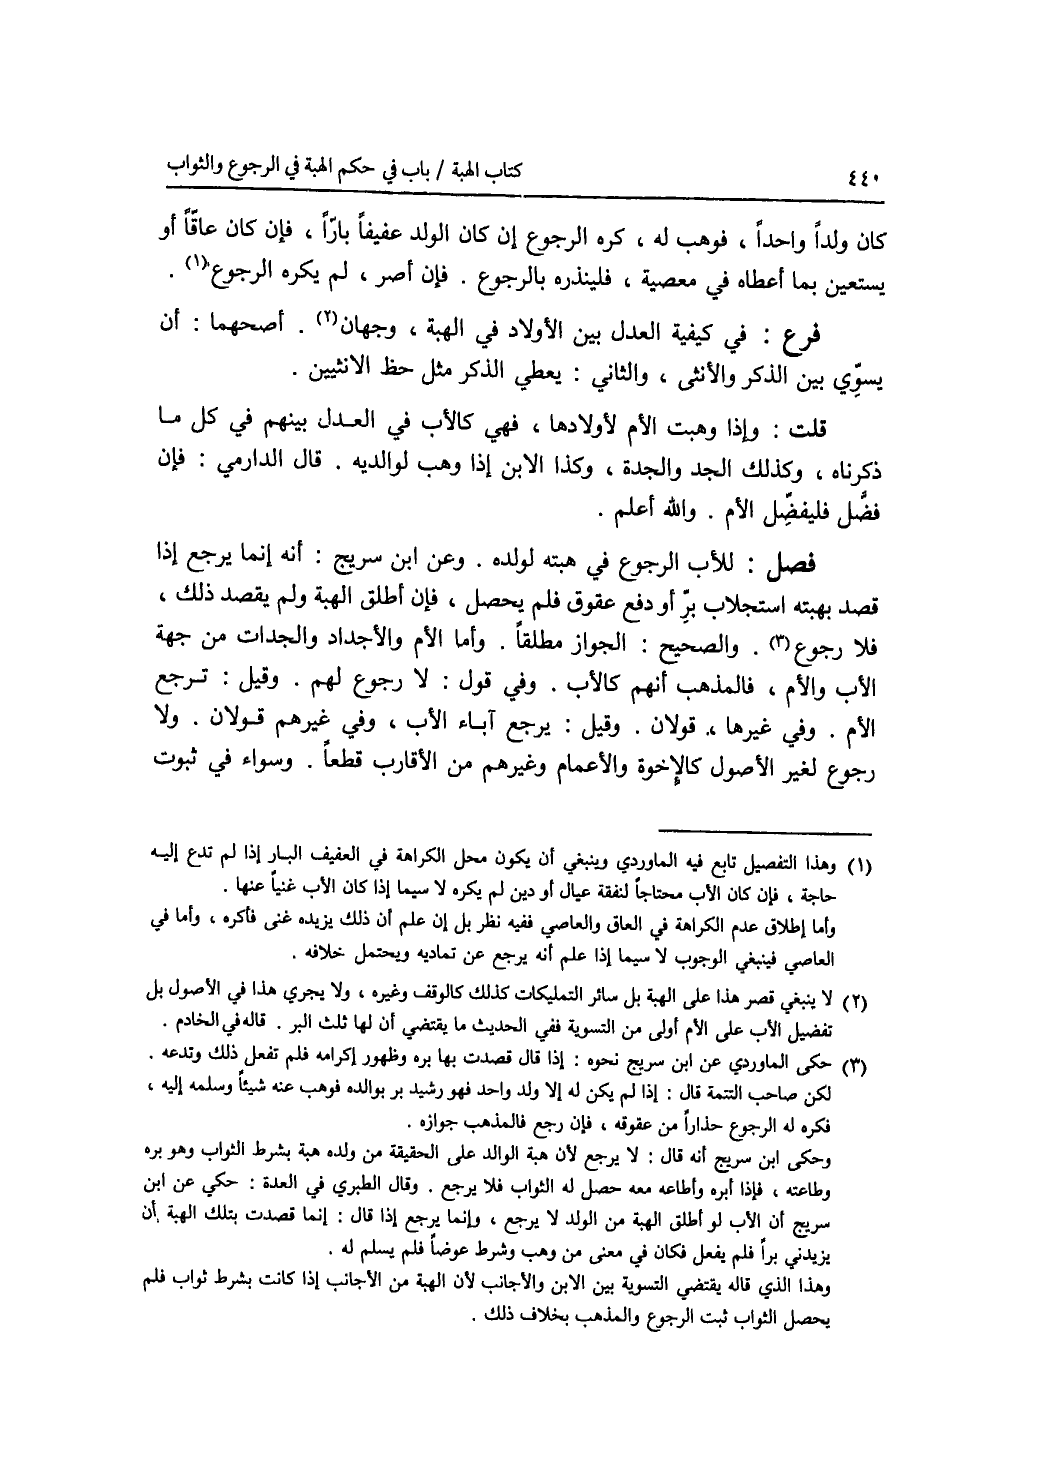 ٤٤٠
كتاب الهبة / باب في حكم الهبة في الرجوع والثواب
كان ولداً واحداً ، فوهب له ، كره الرجوع إن كان الولد عفيفاً بارّاً ، فإن كان عاقّاً أو
يستعين بما أعطاه في معصية ، فلينذره بالرجوع . فإن أصر ، لم يكره الرجوع(١) .
فرع : في كيفية العدل بين الأولاد في الهبة ، وجهان(٢) . أصحهما : أن
يسوِّي بين الذكر والأنثى ، والثاني : يعطي الذكر مثل حظ الانثيين .
قلت : وإذا وهبت الأم لأولادها ، فهي كالأب في العـدل بينهم في كل مـا
ذكرناه ، وكذلك الجد والجدة ، وكذا الابن إذا وهب لوالديه . قال الدارمي : فإن
فضَّل فليفضِّل الأم . والله أعلم .
فصل : للأب الرجوع في هبته لولده . وعن ابن سريج : أنه إنما يرجع إذا
قصد بهبته استجلاب برِّ أو دفع عقوق فلم يحصل ، فإن أطلق الهبة ولم يقصد ذلك ،
فلا رجوع(٣) . والصحيح : الجواز مطلقاً . وأما الأم والأجداد والجدات من جهة
الأب والأم ، فالمذهب أنهم كالأب . وفي قول : لا رجوع لهم . وقيل : تـرجع
الأم . وفي غيرها ، قولان . وقيل : يرجع آبـاء الأب ، وفي غيرهم قـولان . ولا
رجوع لغير الأصول كالإخوة والأعمام وغيرهم من الأقارب قطعاً . وسواء في ثبوت
(١) وهذا التفصيل تابع فيه الماوردي وينبغي أن يكون محل الكراهة في العفيف البـار إذا لم تدع إليـه
حاجة ، فإن كان الأب محتاجاً لنفقة عيال أو دين لم يكره لا سيما إذا كان الأب غنياً عنها .
وأما إطلاق عدم الكراهة في العاق والعاصي ففيه نظر بل إن علم أن ذلك يزيده غنى فأكره ، وأما في
العاصي فينبغي الوجوب لا سيما إذا علم أنه يرجع عن تماديه ويحتمل خلافه .
(٢) لا ينبغي قصر هذا على الهبة بل سائر التمليكات كذلك كالوقف وغيره ، ولا يجري هذا في الأصول بل
تفضيل الأب على الأم أولى من التسوية ففي الحديث ما يقتضي أن لها ثلث البر . قاله في الخادم .
(٣) حكى الماوردي عن ابن سريج نحوه : إذا قال قصدت بها بره وظهور إكرامه فلم تفعل ذلك وتدعه .
لكن صاحب التتمة قال : إذا لم يكن له إلا ولد واحد فهو رشيد بر بوالده فوهب عنه شيئاً وسلمه إليه ،
فكره له الرجوع حذاراً من عقوقه ، فإن رجع فالمذهب جوازه .
وحكى ابن سريج أنه قال : لا يرجع لأن هبة الوالد على الحقيقة من ولده هبة بشرط الثواب وهو بره
وطاعته ، فإذا أبره وأطاعه معه حصل له الثواب فلا يرجع . وقال الطبري في العدة : حكي عن ابن
سريج أن الأب لو أطلق الهبة من الولد لا يرجع ، وإنما يرجع إذا قال : إنما قصدت بتلك الهبة أن
يزيدني براً فلم يفعل فكان في معنى من وهب وشرط عوضاً فلم يسلم له .
وهذا الذي قاله يقتضي التسوية بين الابن والأجانب لأن الهبة من الأجانب إذا كانت بشرط ثواب فلم
يحصل الثواب ثبت الرجوع والمذهب بخلاف ذلك .